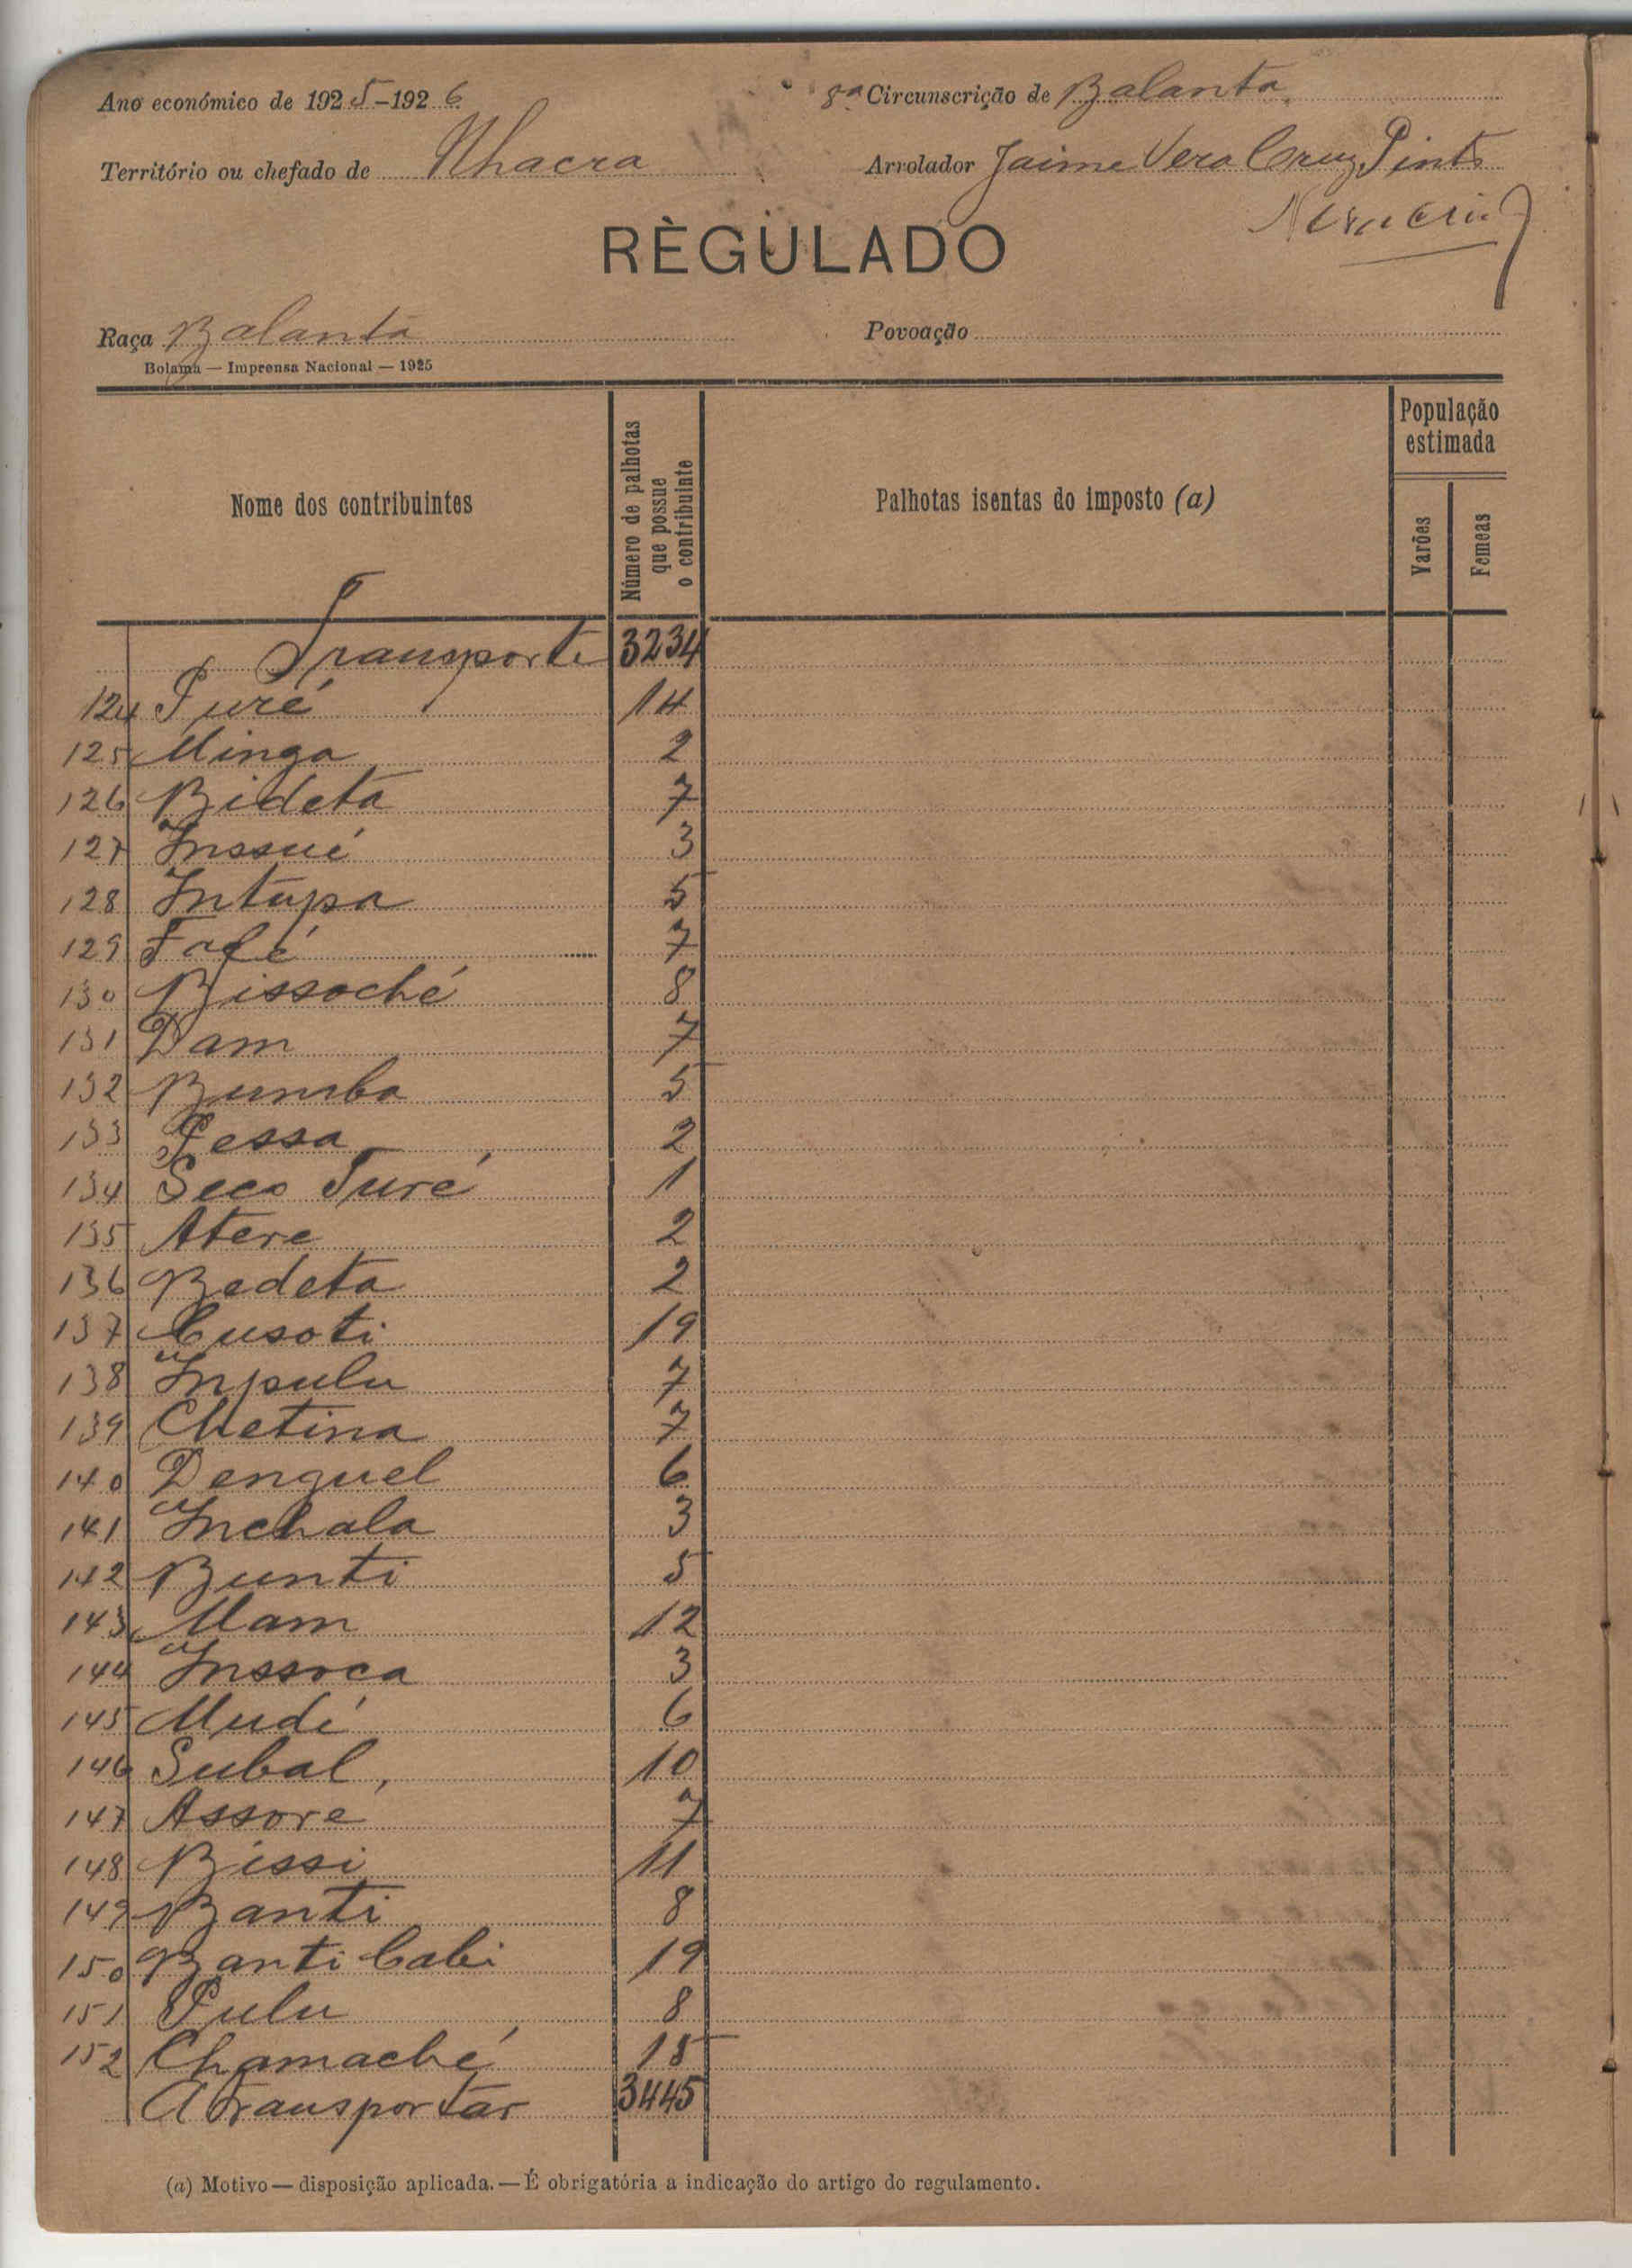 Ano económico de 1925-1926
8ª Circunscrição de Balanta
Território ou chefado de Nhacra
Arrolador Jaime Vera Cruz Pinto
REGULADO
Raça Balanta
Povoação
Bolama — Imprensa Nacional — 1925
Nome dos contribuintes
Número de palhotas que possue o contribuinte
Palhotas isentas do imposto (a)
População estimada
Varões
Femeas
Transporte 3234
124 Turé 14
125 Minga 2
126 Bideta 7
127 Inssué 3
128 Intupa 5
129 Fafé 7
130 Bissoché 8
131 Dam 7
132 Bumba 5
133 Pessa 2
134 Seco Turé 1
135 Atere 2
136 Bedeta 2
137 Cusoti 19
138 Inpulu 7
139 Chetina 7
140 Denguel 6
141 Inchala 3
142 Bunti 5
143 Mam 12
144 Inssoca 3
145 Mudé 6
146 Subal 10
147 Assoré 7
148 Bissi 11
149 Banti 8
150 Banti Cabi 19
151 Pulu 8
152 Chamaché 15
A transportar 3445
(a) Motivo — disposição aplicada. — É obrigatória a indicação do artigo do regulamento.